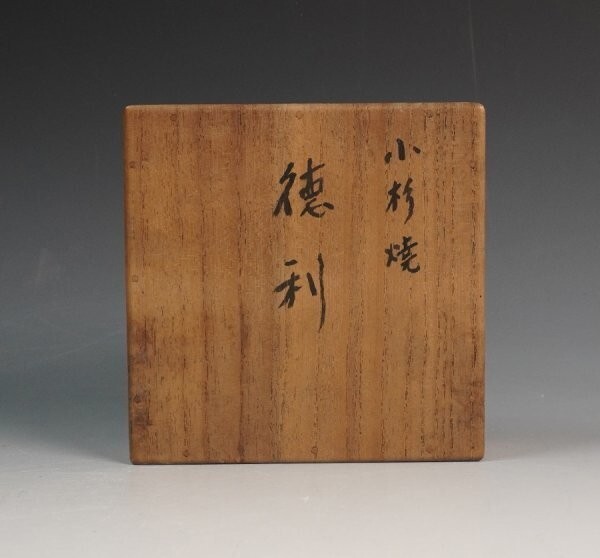 小杉焼
徳利